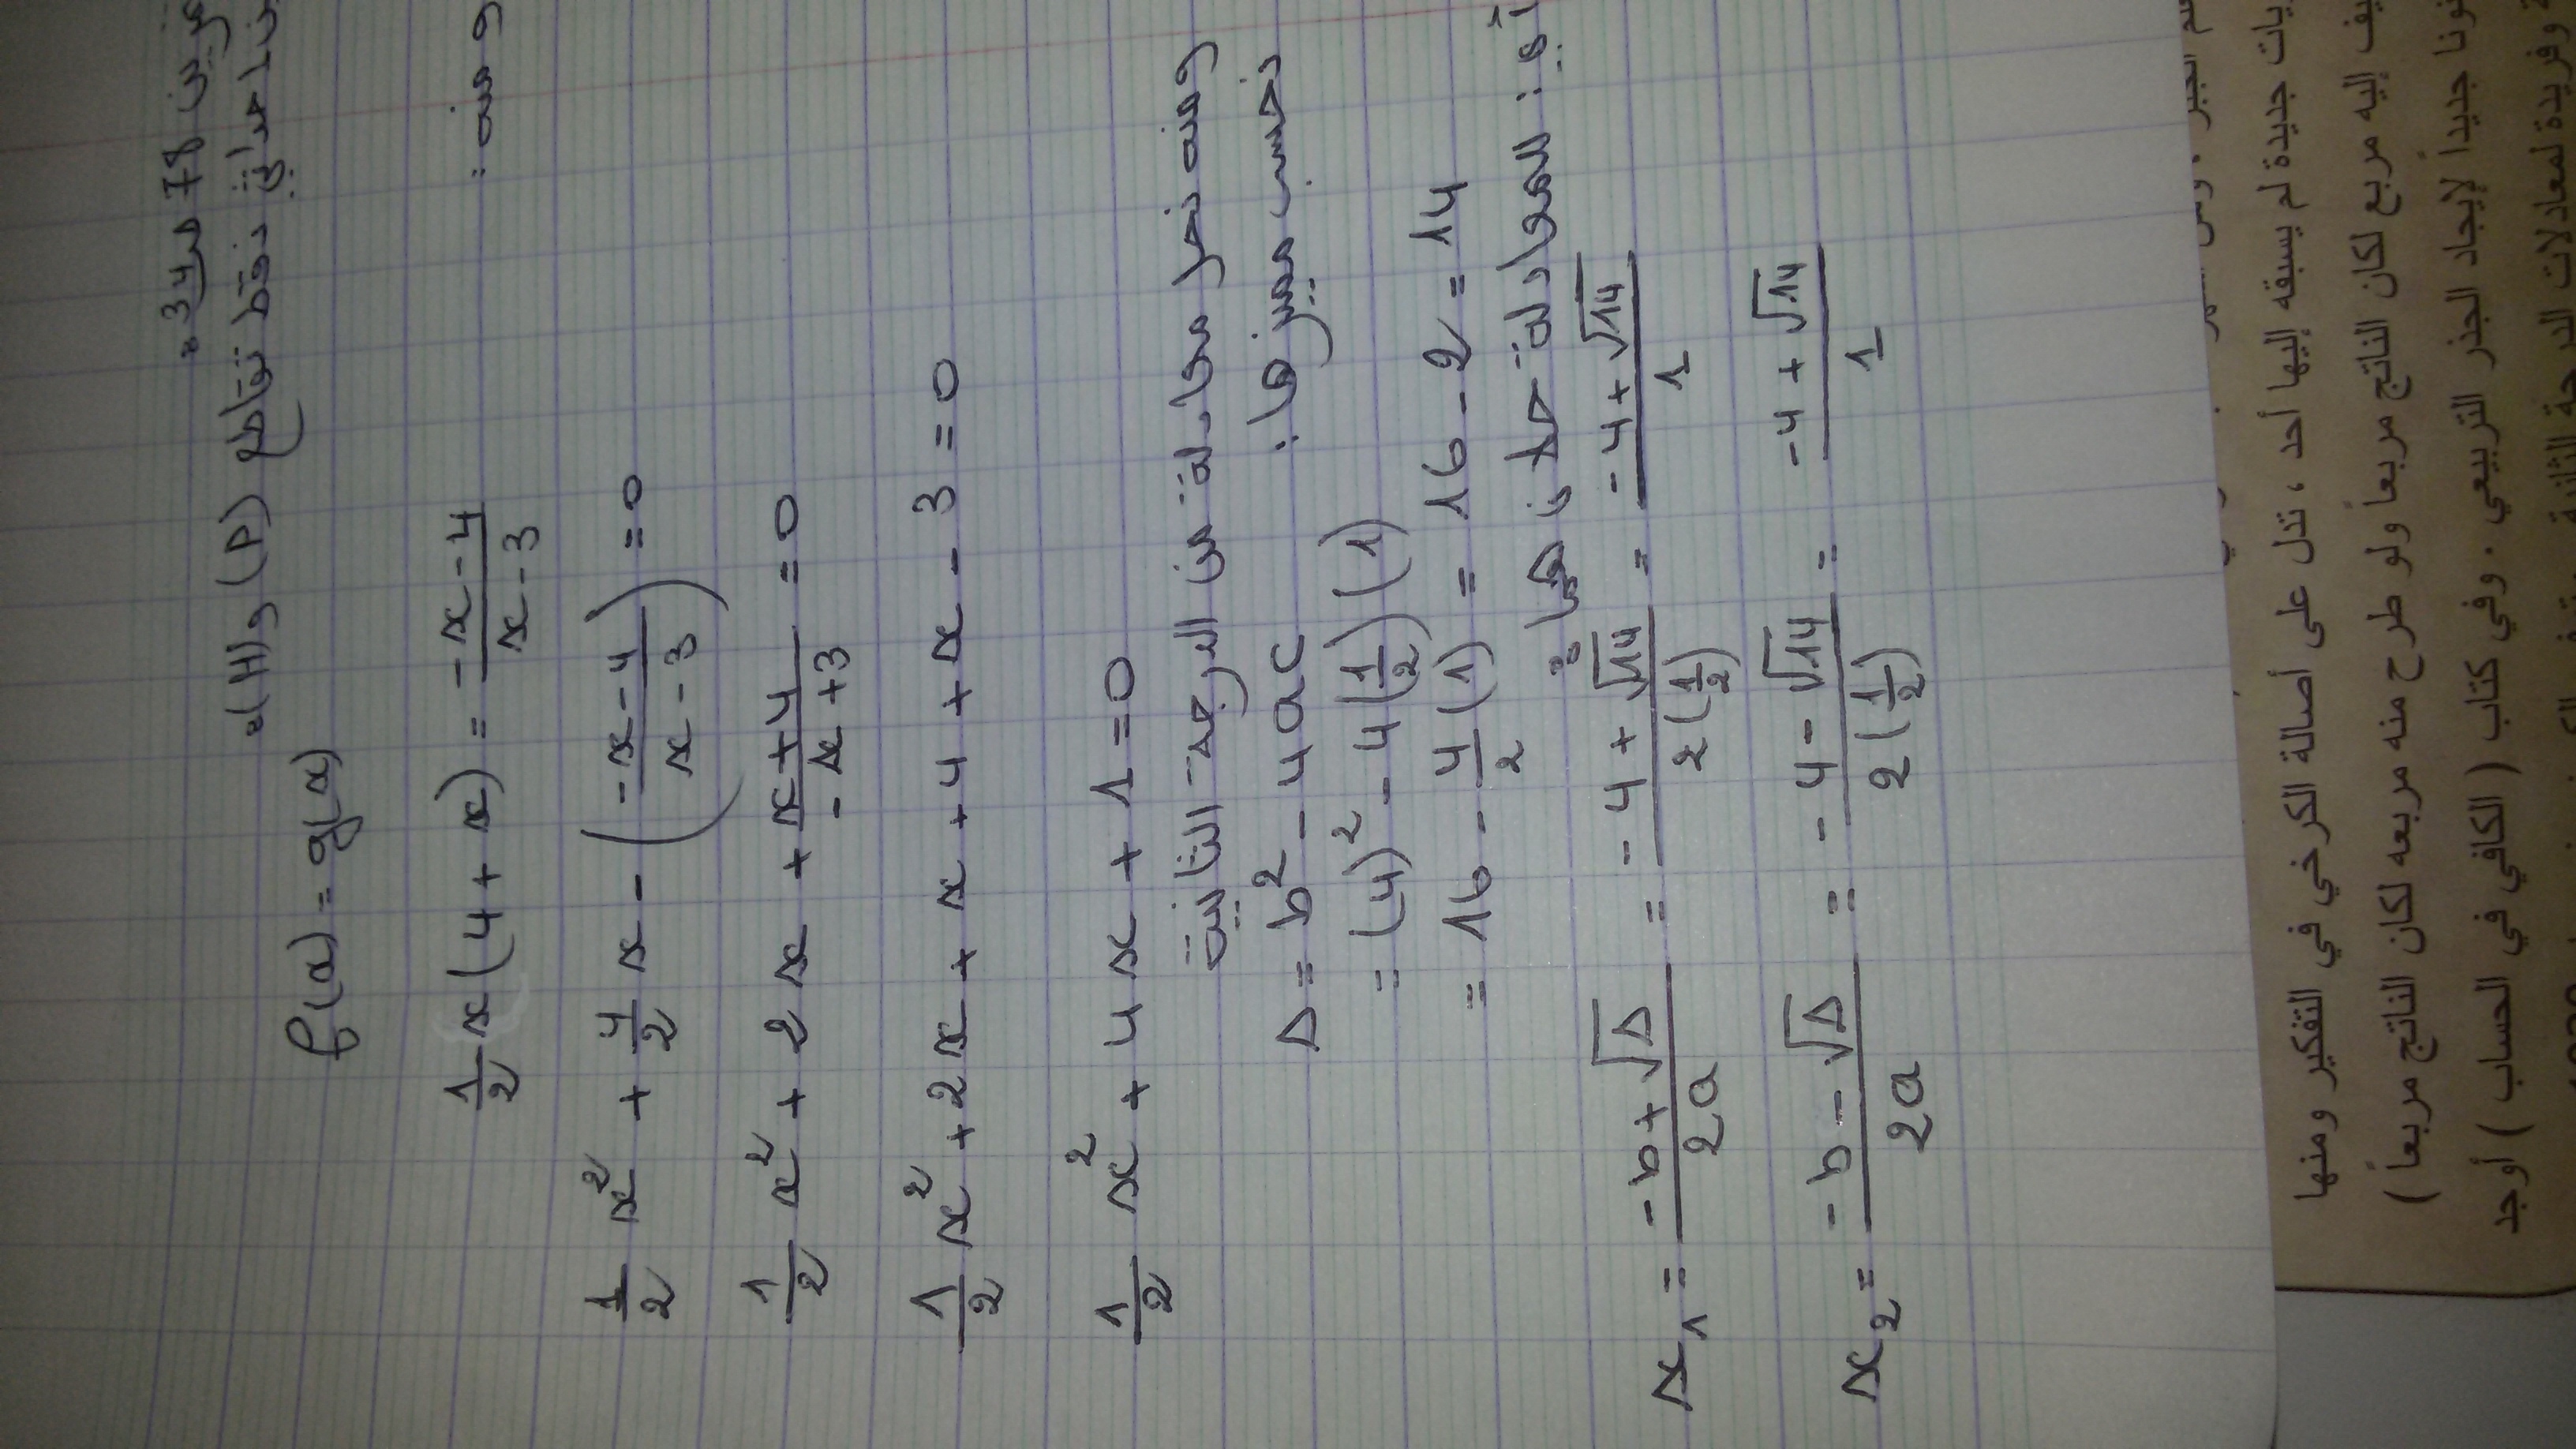 78 ص 34
نقط تقاطع (P) و (H)
f(x) = g(x)
ومنه :
1/2 x(4 + x) = (-x-4)/(x-3)
1/2 x² + 4/2 x - ((-x-4)/(x-3)) = 0
1/2 x² + 2x + (x+4)/(-x+3) = 0
1/2 x² + 2x + x + 4 + x - 3 = 0
1/2 x² + 4x + 1 = 0
ومنه نحل معادلة من الدرجة الثانية
نحسب مميزها :
Δ = b² - 4ac
= (4)² - 4(1/2)(1)
= 16 - 4/2 (1) = 16 - 2 = 14
: المعادلة حلان هما :
x₁ = (-b+√Δ)/2a = (-4+√14)/2(1/2) = (-4+√14)/1
x₂ = (-b-√Δ)/2a = (-4-√14)/2(1/2) = (-4+√14)/1
يات جديدة لم يسبقه إليها أحد ، تدل على أصالة الكرخي في التفكير ومنها
يف إليه مربع لكان الناتج مربعاً ولو طرح منه مربعه لكان الناتج مربعاً )
نونا جديداً لإيجاد الجذر التربيعي . وفي كتاب ( الكافي في الحساب ) أوجد
وفريدة لمعادلات الدرجة الثانية